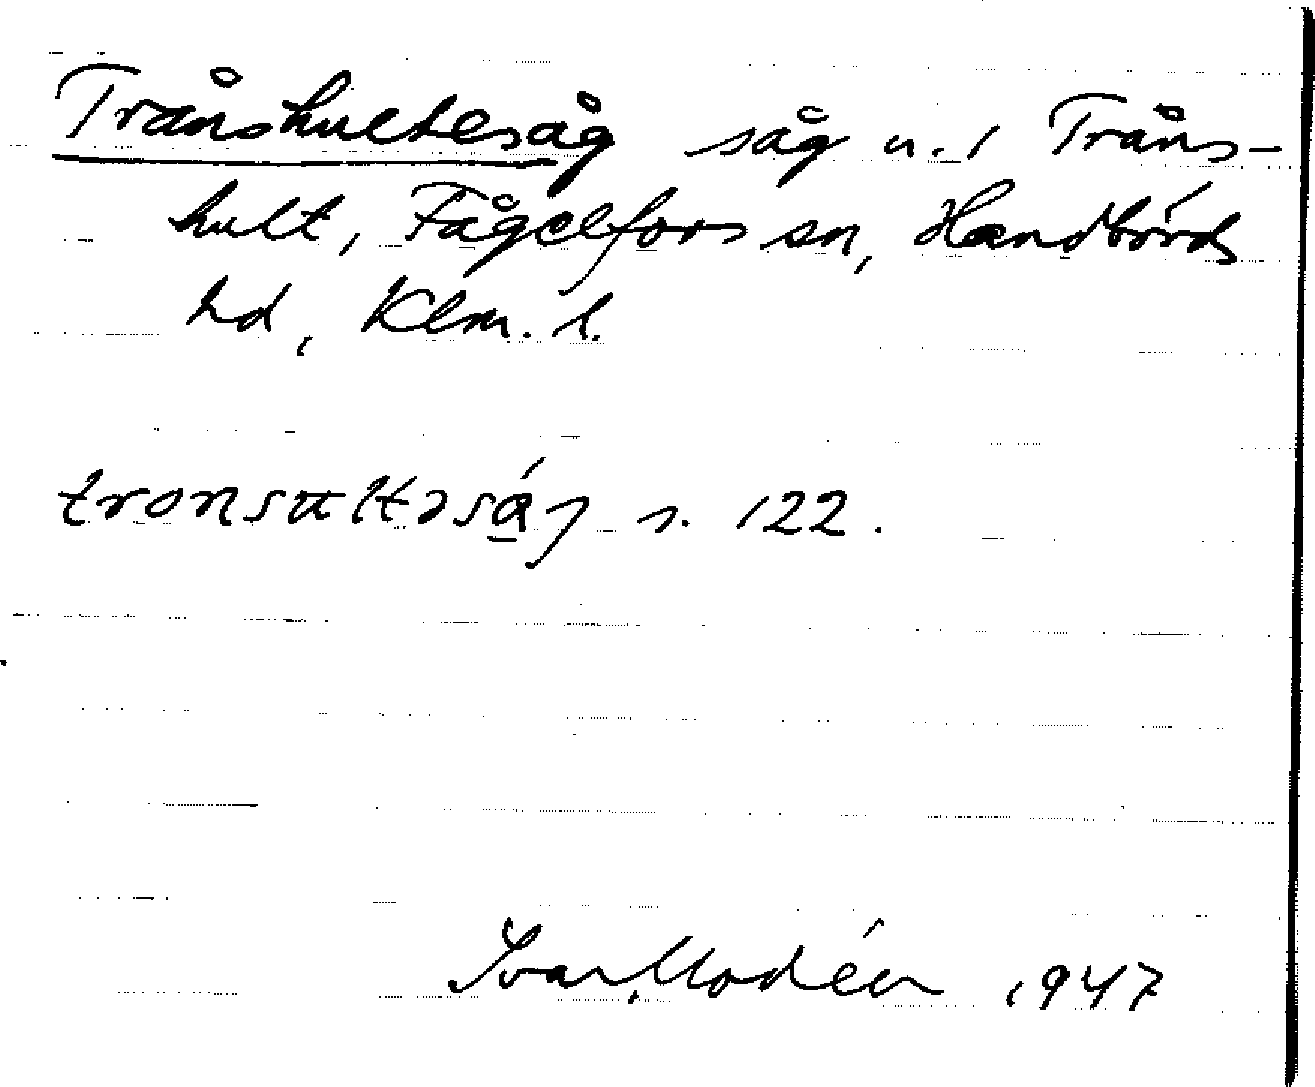 Trånshultesåg såg u. 1 Tråns-
hult, Fågelfors sn, Handbörds
hd, Klm. l.
tronsultəság s. 122.
Ivar Modéer 1947